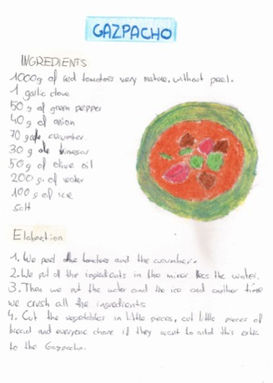 GAZPACHO
INGREDIENTS
1000g of red tomatoes very mature, without peel.
1 garlic clove
50 g of green pepper
40 g of onion
70 g of cucumber
30 g of vinegar
50 g of olive oil
200 g of water
100 g of ice
Salt
Elaboration
1. We peel the tomatoes and the cucumber.
2. We put all the ingredients in the mixer less the water.
3. Then we put the water and the ice and another time
we crush all the ingredients
4. Cut the vegetables in little pieces, cut little pieces of
bread and everyone chose if they want to add this extra
to the Gazpacho.